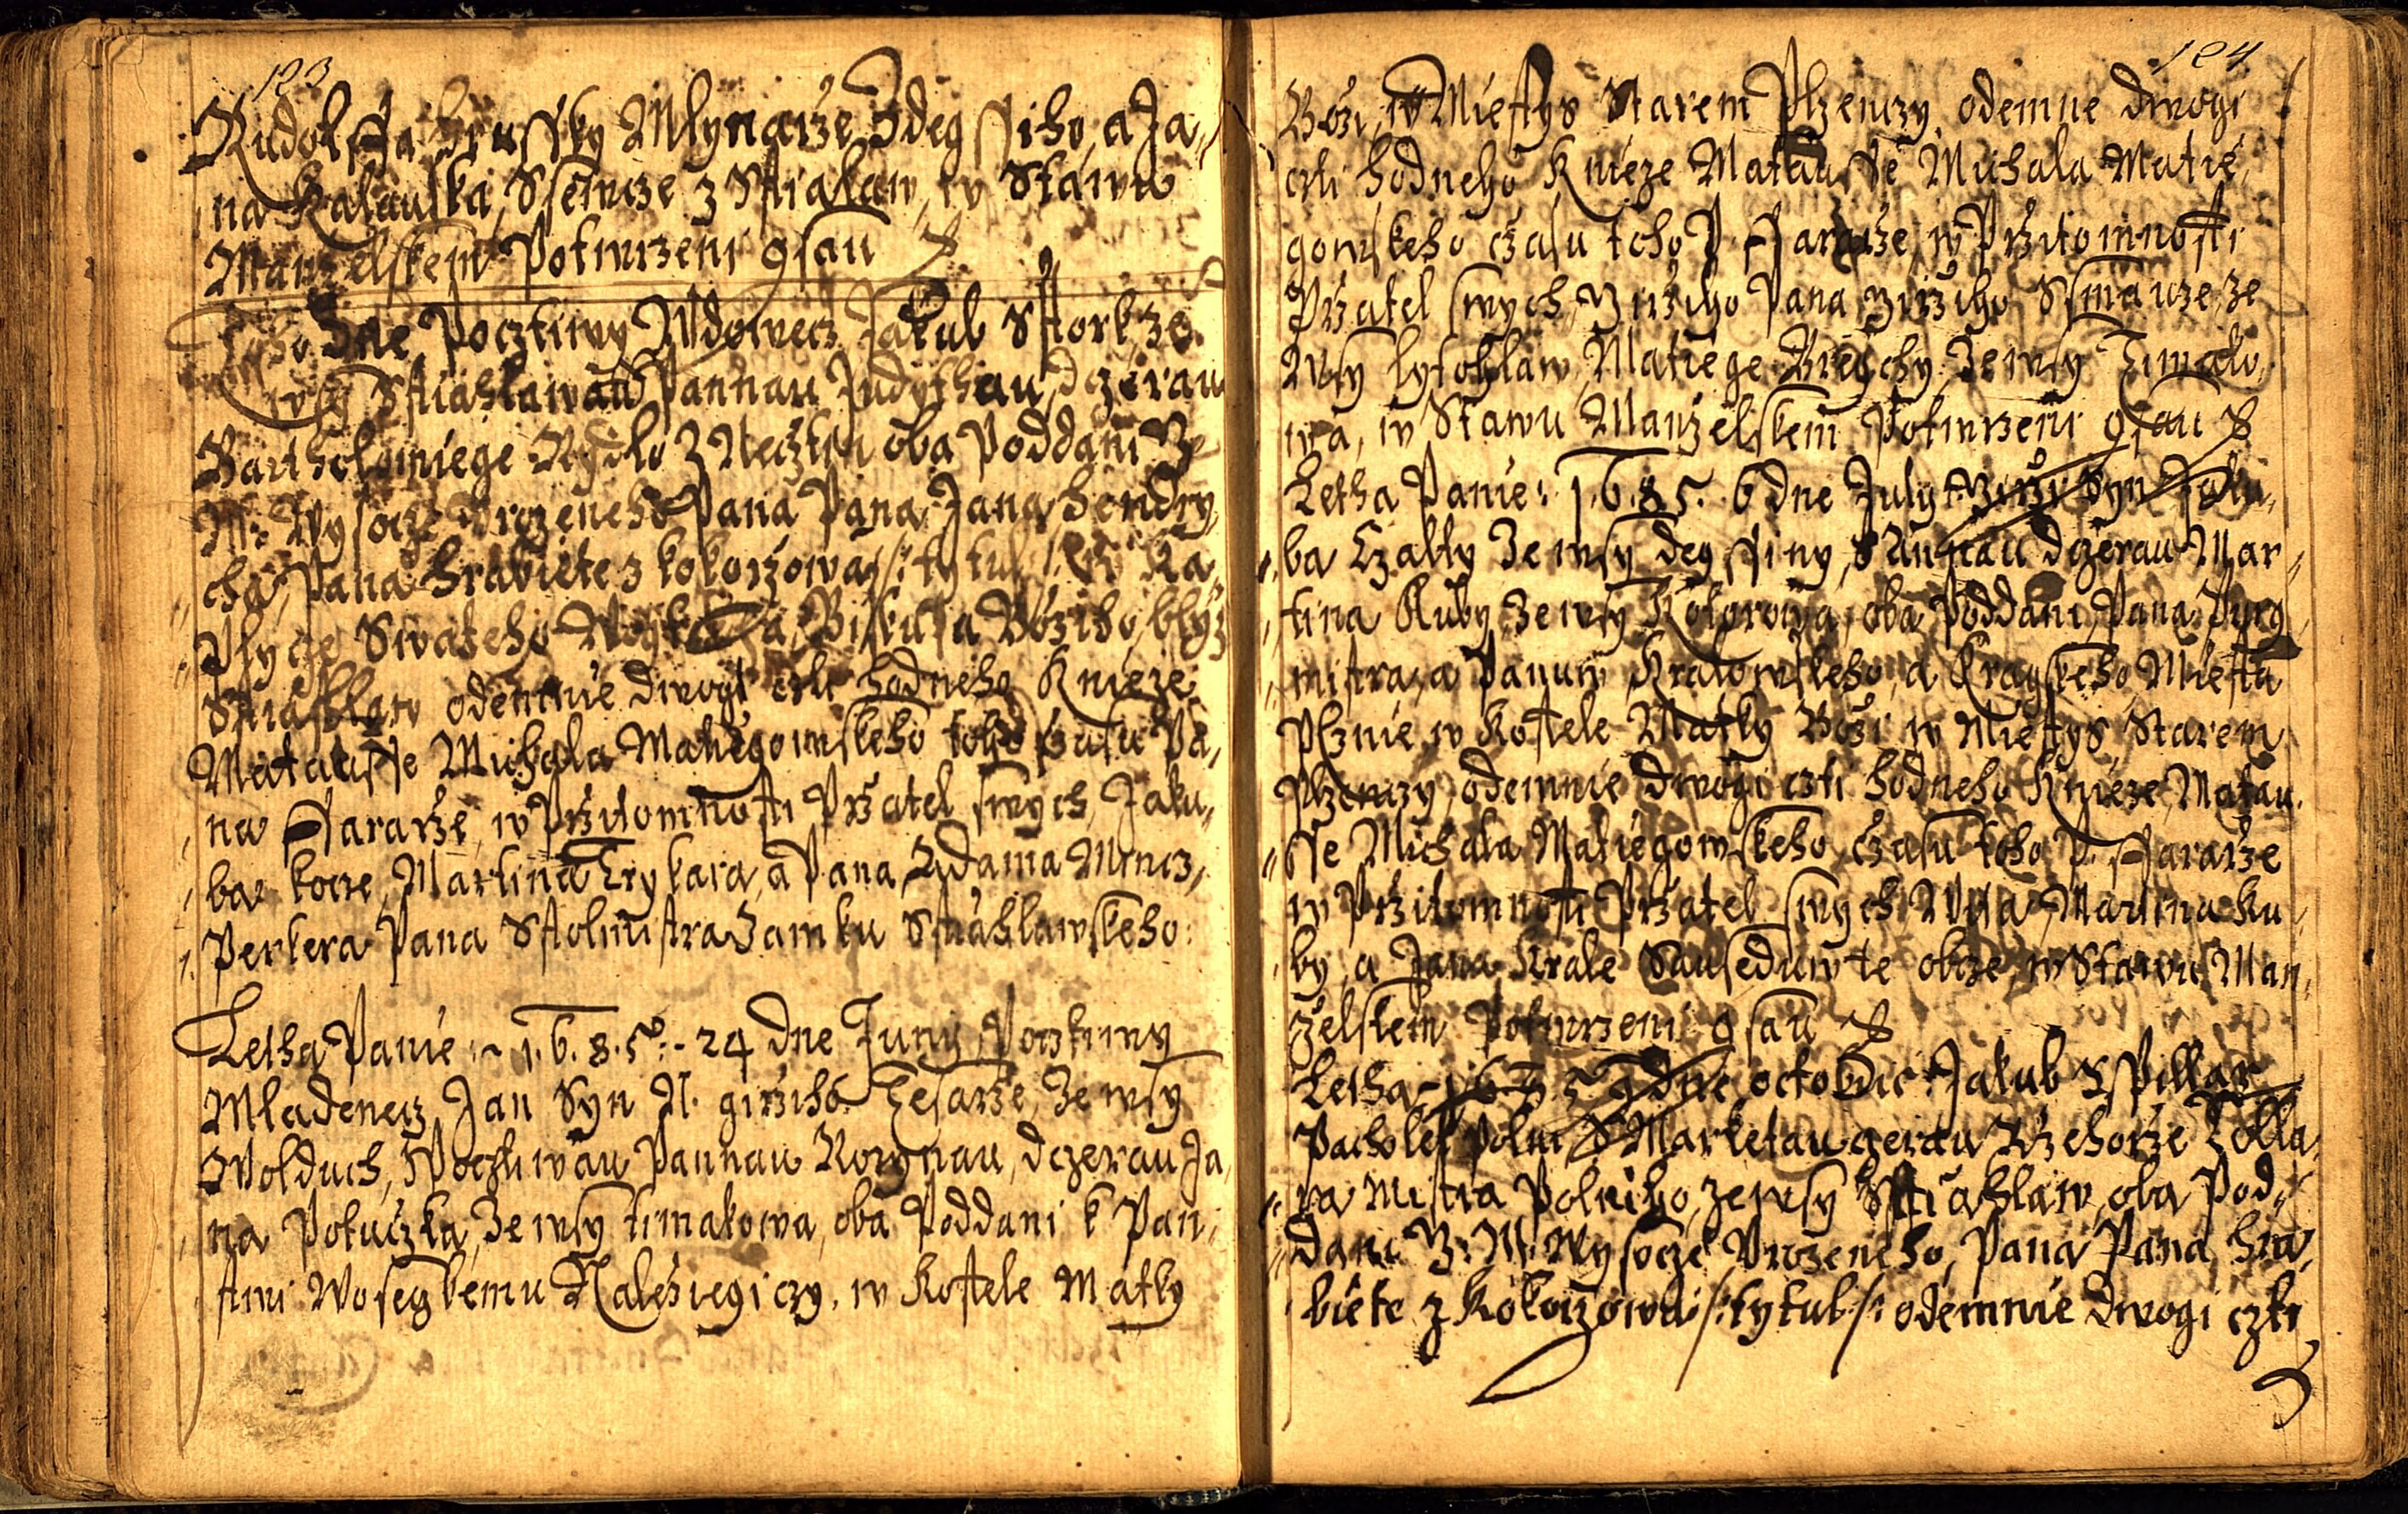 123
Rudolffa Hrussky Mlynarže Zdegssiho, a Ja,,
na Kalauska, Ssewcze z Stialaw, w Stawu
Manželskem Potwrzeni gsau
Toho Dne Pocztiwy Wdowecz Jakub Sstork, ze
wsy Sstiahlaw aů Pannau Judythau, dczerau
Bartholomiege Rydlo z Necztin oba Poddani Je
M: Wysocze Urozeneho Pana Pana Jana Hendry,,
cha, Pana Hrabiete z Kokorzowa /: tytul :/ W Ka,,
Plycze Swateho Wogtiecha, Biskupa Božiho, blyz
Sstiahlaw odemnie dwogi czti hodneho Knieze
Matausse Michala Matiegowskeho toho čzasu Pa,,
na Ffararže, w Pržitomnosti Pržatel swych, Jaku,,
ba kocze, Martina Trykara, a Pana Adama Mincz,,
Perkera Pana Sstolmistra Zamku Sstiahlawskeho:
Letha Panie :~ 1.6.8.5 :- 24 dne Juny Pocztiwy
Mladenecz, Jan Syn N. giržiho Tesarže, Ze wsy
Wolduch, S Pocztiwau Pannau Rozynau, dczerau Ja,,
na Potuczka, Ze wsy timakowa, oba Poddani k Pan,,
stwi Wosegkemu Naležiegiczy, w Kostele Matky
124
Boži, w Miestys Starem Plzenczy, odemne dwogi
czti hodneho Knieze Matausse Michala Matie,,
gowskeho čzasu toho P. Ffararže, w Pržitomnosti
Pržatel swych, Giržiho Pana Giržiho Ssmauze, ze
Wsy lysohlaw, Matiege Breychy, Ze wsy Timako,,
wa, w Stawu Manželskem Potwrzeni gsau
Letha Panie: 1.6.85. 6 dne July Giržj Syn Jaku,,
ba Czalty Ze wsy degssiny, S Annau dczerau Mar,,
tina Kuby, ze wsy Kotorowa, oba Poddani, Pana Purg,,
mistra, a Panuw Kralowskeho, a Kragskeho Miesta
Plznie, w Kostele Matky Boži w Miestys Starem
Plzenczy, odemnie dwogi czti hodneho Knieze Matau,,
sse Michala Matiegowskeho, čzasu toho P. Ffararže
w Pržitomnosti Pržatel swych, Wita Martina Ku,,
by, a Jana Krale Sauseduw te obcze, w Stawu Man,,
želskem Potwrzeni gsau
Letha 1685 9 dne octobris Jakub Sspillar
Pacholek Polni S Marketau gerau Ržehorže Zolla,,
ra Mistra Polniho, ze wsy Sstiahlaw, oba Pod,,
dani G: M: Wysocze Urozeneho, Pana Pana hra,,
biete z Kokorzowa /: tytul :/ odemnie dwogi czti